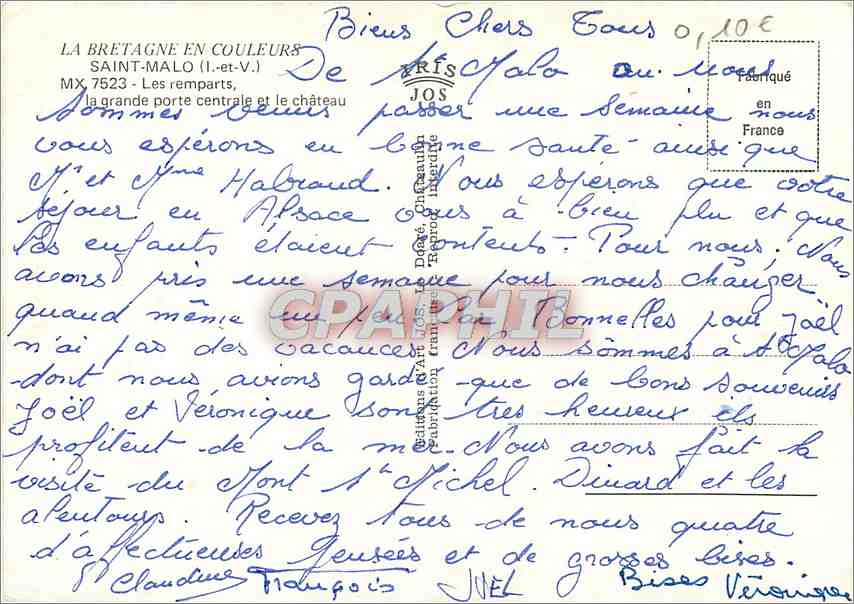 Biens Chers Tous 0,10€
LA BRETAGNE EN COULEURS
SAINT-MALO (I.-et-V.)
MX 7523 - Les remparts,
la grande porte centrale et le château
YRIS
JOS
Fabriqué
en
France
Editions d'Art JOS, Le Doaré, Châteaulin
Fabrication française - Reproc. interdite
CPAPHIL
De St Malo ou nous
sommes venus passer une semaine nous
vous espérons en bonne santé ainsi que
Mr et Mme Habraud. Nous espérons que votre
séjour en Alsace vous à bien plu et que
les enfants étaient contents. Pour nous, Nous
avons pris une semaine pour nous changer
quand même un peu Car Bonnelles pour Joël
n'ai pas des vacances. Nous sommes à St Malo
dont nous avions gardé que de bons souvenirs
Joël et Véronique sont très heureux ils
profitent de la mer. Nous avons fait la
visite du Mont St Michel. Dinard et les
alentours. Recevez tous de nous quatre
d'affectueuses Pensées et de grosses bises.
Claudine François JOËL Bises Véronique